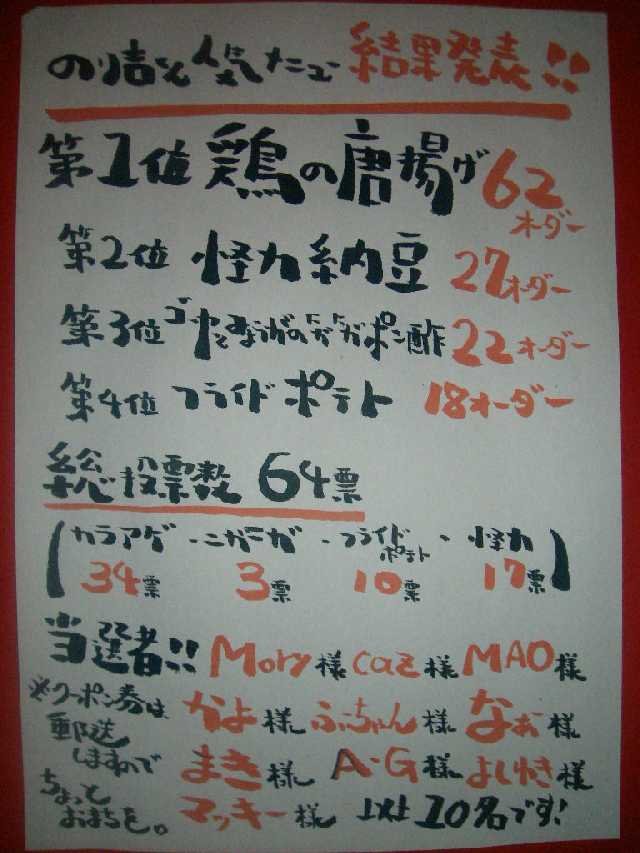 のり吉さん人気メニュー 結果発表!!
第1位 鶏の唐揚げ 62オーダー
第2位 怪力納豆 27オーダー
第3位 ゴーヤとみょうがのポン酢 22オーダー
第4位 フライドポテト 18オーダー
総投票数 64票
(カラアゲ・ニガニガ・フライドポテト・怪力)
34票 3票 10票 17票
当選者!! Mory様 caz様 MAO様
※クーポン券は かよ様 ふーちゃん様 なお様
郵送しますので まき様 A-G様 よしゆき様
ちょっとおまちを。 マッキー様 以上10名です!